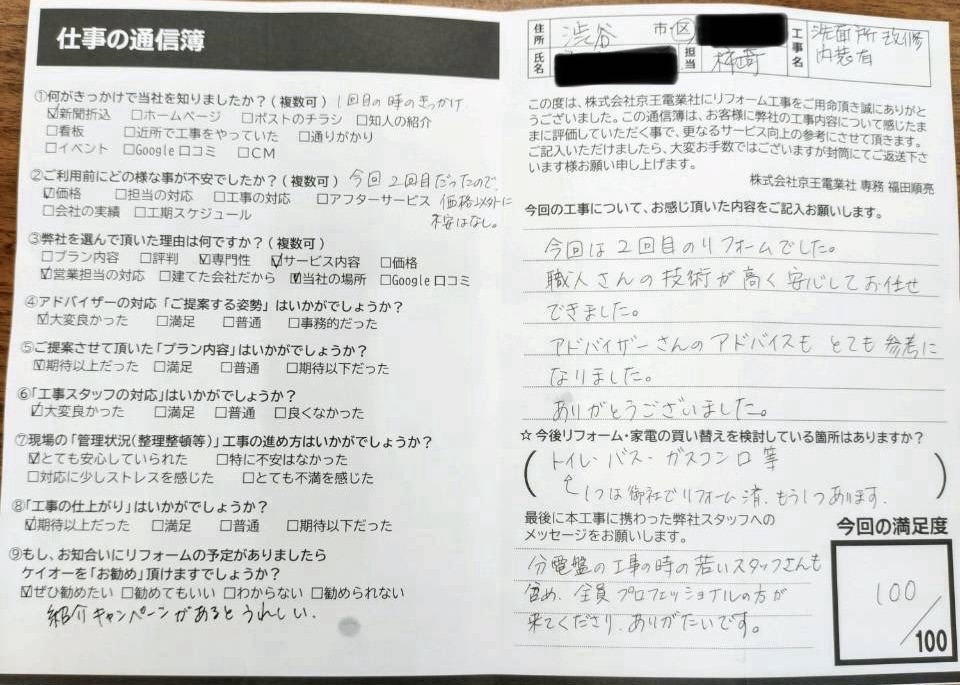 仕事の通信簿
①何がきっかけで当社を知りましたか?(複数可) 1回目の時のきっかけ
☑新聞折込 □ホームページ □ポストのチラシ □知人の紹介
□看板 □近所で工事をやっていた □通りがかり
□イベント □Google口コミ □CM
②ご利用前にどの様な事が不安でしたか?(複数可) 今回2回目だったので、
☑価格 □担当の対応 □工事の対応 □アフターサービス 価格以外に
□会社の実績 □工期スケジュール 不安はなし。
③弊社を選んで頂いた理由は何ですか?(複数可)
□プラン内容 □評判 ☑専門性 ☑サービス内容 □価格
☑営業担当の対応 □建てた会社だから ☑当社の場所 □Google口コミ
④アドバイザーの対応「ご提案する姿勢」はいかがでしょうか?
☑大変良かった □満足 □普通 □事務的だった
⑤ご提案させて頂いた「プラン内容」はいかがでしょうか?
☑期待以上だった □満足 □普通 □期待以下だった
⑥「工事スタッフの対応」はいかがでしょうか?
☑大変良かった □満足 □普通 □良くなかった
⑦現場の「管理状況(整理整頓等)」工事の進め方はいかがでしょうか?
☑とても安心していられた □特に不安はなかった
□対応に少しストレスを感じた □とても不満を感じた
⑧「工事の仕上がり」はいかがでしょうか?
☑期待以上だった □満足 □普通 □期待以下だった
⑨もし、お知合いにリフォームの予定がありましたら
ケイオーを「お勧め」頂けますでしょうか?
☑ぜひ勧めたい □勧めてもいい □わからない □勧められない
紹介キャンペーンがあるとうれしい.
住所 渋谷 市・区
氏名 担当 柿崎
工事名 洗面所改修
内装有
この度は、株式会社京王電業社にリフォーム工事をご用命頂き誠にありがと
うございました。この通信簿は、お客様に弊社の工事内容について感じたま
まに評価していただく事で、更なるサービス向上の参考にさせて頂きます。
ご記入いただけましたら、大変お手数ではございますが封筒にてご返送下さ
います様お願い申し上げます。
株式会社京王電業社 専務 福田順亮
今回の工事について、お感じ頂いた内容をご記入お願いします。
今回は2回目のリフォームでした。
職人さんの技術が高く安心してお任せ
できました。
アドバイザーさんのアドバイスもとても参考に
なりました。
ありがとうございました。
☆今後リフォーム・家電の買い替えを検討している箇所はありますか?
(トイレ・バス・ガスコンロ等
↑1つは御社でリフォーム済.もう1つあります.)
最後に本工事に携わった弊社スタッフへの
メッセージをお願いします。
分電盤の工事の時の若いスタッフさんも
含め、全員プロフェッショナルの方が
来てくださり、ありがたいです。
今回の満足度
100
/100